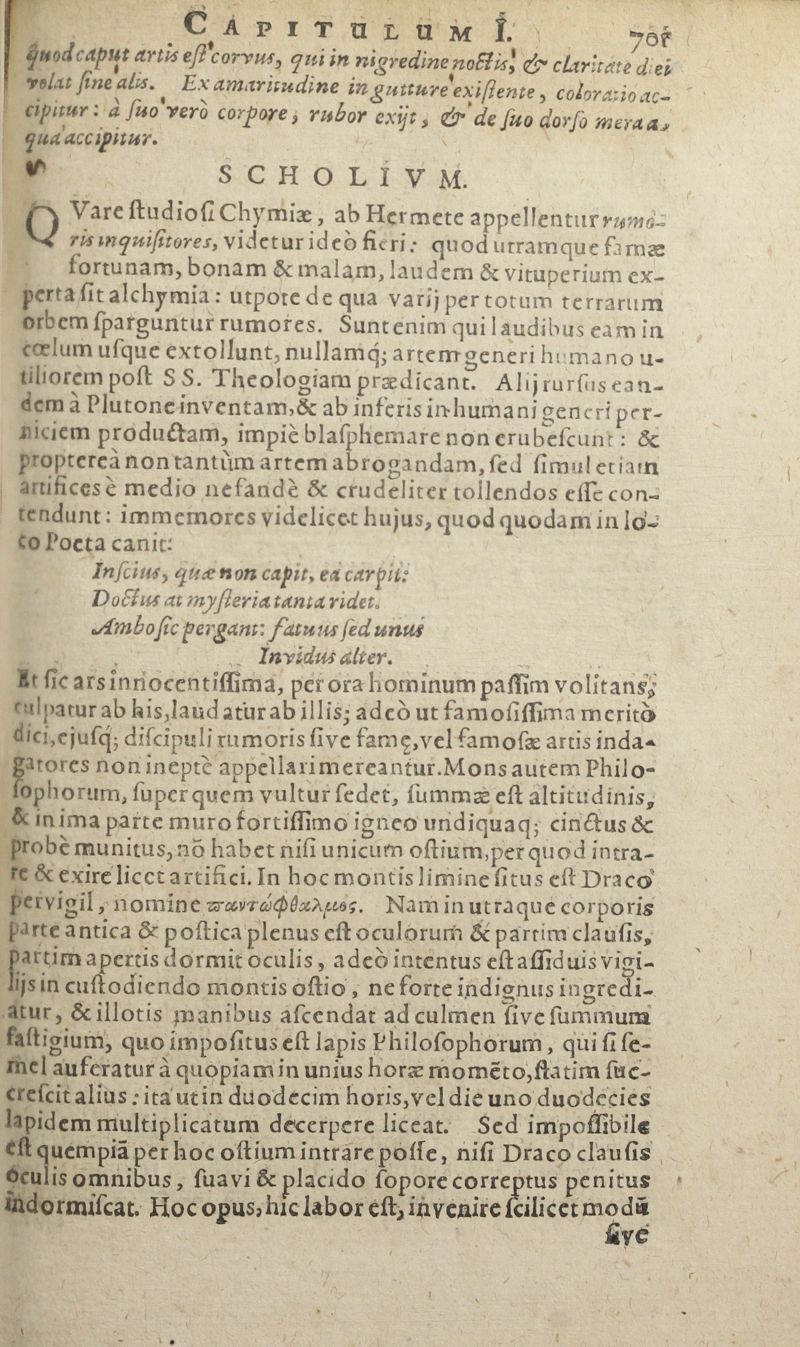 CAPITULUM I. 701
quod caput artis est corvus, qui in nigredine noctis, & claritate diei
volat sine alis. Ex amaritudine in gutture existente, coloratio ac-
cipitur: a suo vero corpore, rubor exijt, & de suo dorso mera a-
qua accipitur.
SCHOLIVM.
QVare studiosi Chymiæ, ab Hermete appellentur rumo-
ris inquisitores, videtur ideò fieri: quod utramque famæ
fortunam, bonam & malam, laudem & vituperium ex-
perta sit alchymia: utpote de qua varij per totum terrarum
orbem sparguntur rumores. Sunt enim qui laudibus eam in
cœlum usque extollunt, nullamq; artem generi humano u-
tiliorem post SS. Theologiam prædicant. Alij rursus ean-
dem à Plutone inventam, & ab inferis in humani generi per-
niciem productam, impiè blasphemare non erubescunt: &
propterea non tantùm artem abrogandam, sed simul etiam
artifices è medio nefandè & crudeliter tollendos esse con-
tendunt: immemores videlicet hujus, quod quodam in lo-
co Poeta canit:
Inscius, quæ non capit, ea carpit:
Doctus at mysteria tanta ridet.
Ambo sic pergant: fatuus sed unus
Invidus alter.
Et sic ars innocentissima, per ora hominum passim volitans,
culpatur ab his, laudatur ab illis; adeò ut famosissima meritò
dici, ejusq; discipuli rumoris sive famę, vel famosæ artis inda-
gatores non ineptè appellari mereantur. Mons autem Philo-
sophorum, super quem vultur sedet, summæ est altitudinis,
& in ima parte muro fortissimo igneo undiquaq; cinctus &
probè munitus, nō habet nisi unicum ostium, per quod intra-
re & exire licet artifici. In hoc montis limine situs est Draco
pervigil, nomine παντώφθαλμος. Nam in utraque corporis
parte antica & postica plenus est oculorum & partim clausis,
partim apertis dormit oculis, adeò intentus est assiduis vigi-
lijs in custodiendo montis ostio, ne forte indignus ingredi-
atur, & illotis manibus ascendat ad culmen sive summum
fastigium, quo impositus est lapis Philosophorum, qui si se-
mel auferatur à quopiam in unius horæ momēto, statim suc-
crescit alius: ita ut in duodecim horis, vel die uno duodecies
lapidem multiplicatum decerpere liceat. Sed impossibile
est quempiã per hoc ostium intrare posse, nisi Draco clausis
oculis omnibus, suavi & placido sopore correptus penitus
indormiscat. Hoc opus, hic labor est, invenire scilicet modũ
sive